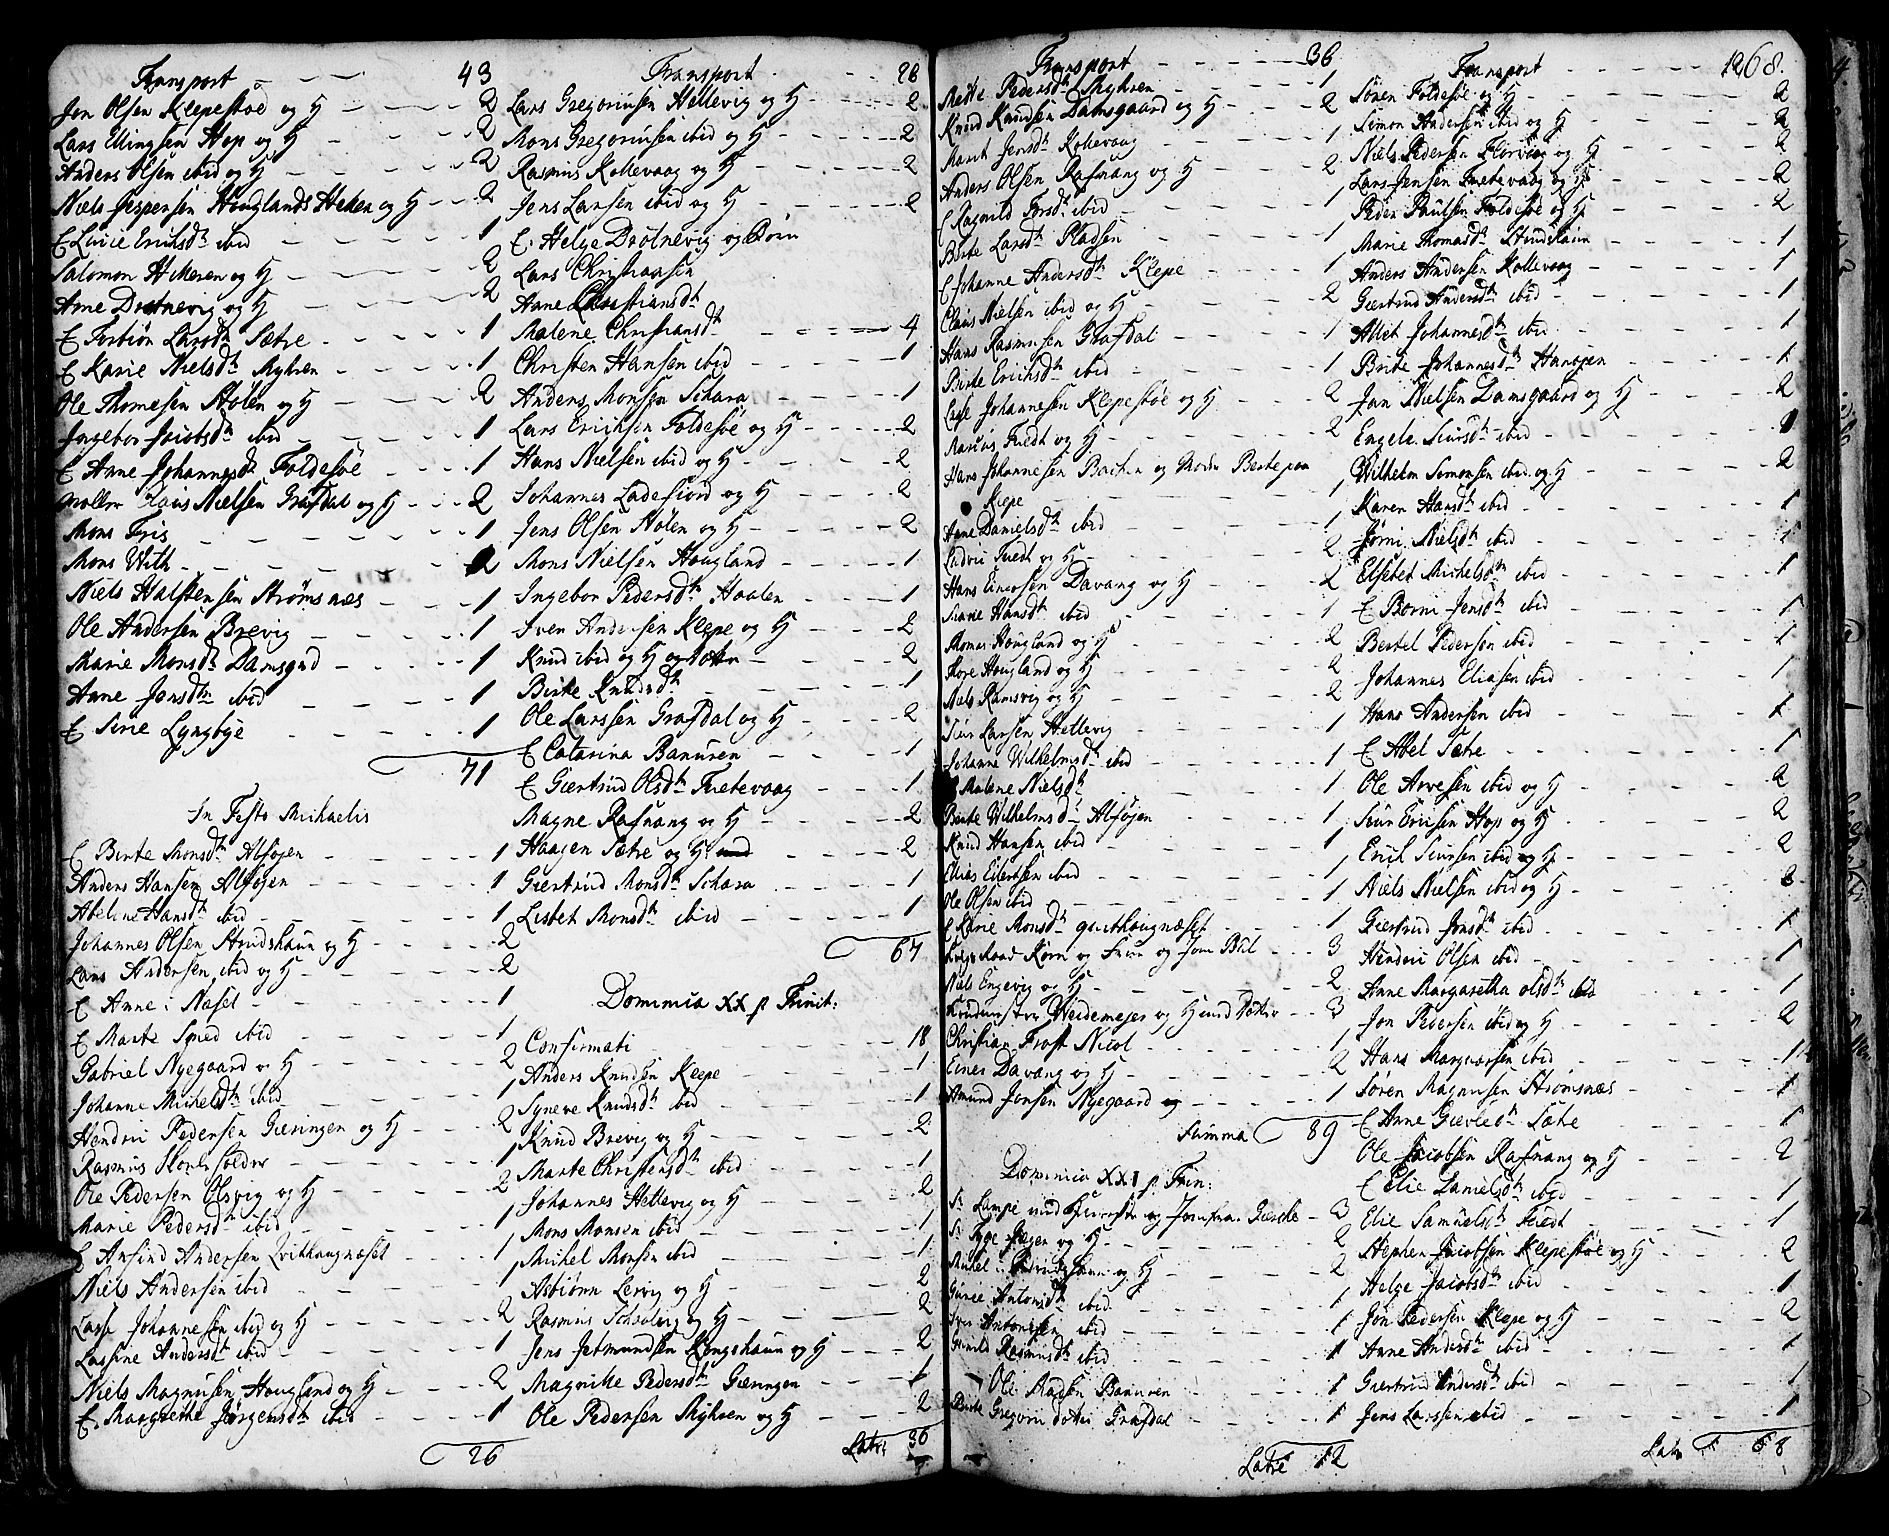 Transport - - - 43
Jon Olsen Klepestöe og H - - 2
Lars Ellingsen Hop og H - - - 2
Anders Olsen ibid og H - - - 2
Niels Jespersen Houglands Heken og H - - 2
E Livie Erichsdtr ibid - - - 1
Salomon Hekeren og H - - - 2
Arne Drotnevig og H - - - 2
E Torbiön Larsdtr Sætre - - - 1
E Karie Nielsdtr Myhren - - - 1
Ole Thomesen Stölen og H - - - 2
Ingebor Jacobsdtr ibid - - - 1
E Anne Johannesdtr Foldesöe - - 1
Claus Nielsen Grafdal og H - - 2
Mons Friis - - - 1
Mons With - - - 2
Niels Halstensen Strömsnæs - - - 1
Ole Andersen Brevig - - - 1
Marie Monsdtr Damsgrd - - - 1
Anne Jonsdtr ibid - - - 1
E Sirie Lyngbye - - - 1
71
In Festo Michaelis
E Birte Monsdtr Alföjen - - - 1
Anders Hansen Alföjen - - - 1
Abelone Hansdtr ibid - - - 1
Johannes Olsen Strudshavn og H - - - 2
Lars Andersen ibid og H - - - 2
E Anne i Næset - - - 1
E Marte Smed ibid - - - 1
Gabriel Nyegaard og H - - - 2
Johanne Michelsdtr ibid - - - 1
Hendric Pedersen Gieringen og H - - - 2
Rasmus - - - 1
Ole Pedersen Olsvig og H - - - 2
Marie Pedersdtr ibid - - - 1
E Ansind Andersen Qvithougnæset - - 1
Niels Andersen ibid - - - 1
Lasse Johannesen ibid og H - - - 2
Lassine Andersdtr ibid - - - 1
Niels Magnusen Hougland og H - - - 2
E. Margrethe Jörgensdtr ibid - - - 1
26
Transport - - - 26
Lars Gregoriusen Hellevig og H - - - 2
Mons Gregoriusen ibid og H - - - 2
Rasmus Kollevaag og H - - - 2
Jens Larsen ibid og H - - - 2
E. Helge Drotnevig og Börn
Lars Christiansen
Anne Christiansdtr
Malene Christiansdtr - - - 4
Christen Hansen ibid - - - 1
Anders Monsen Schara - - - 1
Lars Erichsen Foldesöe og H - - - 2
Hans Nielsen ibid og H - - - 2
Johannes Ladefiord og H - - - 2
Jens Olsen Stölen og H - - - 2
Mons Nielsen Hougland - - - 1
Ingebor Pedersdtr Haalen - - - 1
Sven Andersen Klepe og H - - - 2
Knud ibid og H - - - 2
Birte Knudsdtr - - - 1
Ole Larssen Grafdal og H - - - 2
E Catarina Banuren - - - 1
E Giertrud Olsdtr Tuetevaag - - - 1
Magne Rafnang og H - - - 2
Haagen Sætre og H - - - 2
Giertrud Monsdtr Schara - - - 1
Lisbet Monsdtr ibid - - - 1
67
Dominica XX p Trinit:
Confirmati - - - 18
Anders Knudsen Klepe - - - 1
Syneve Knudsdtr ibid - - - 1
Knud Brevig og H - - - 2
Marte Christensdtr ibid - - - 1
Johannes Hellevig og H - - - 2
Mons Monsen ibid - - - 1
Michel Monsen ibid - - - 1
Asbiörn Lervig og H - - - 2
Rasmus Schaalvig og H - - - 2
Jens Jetmundsen Kongshaun og H - - - 2
Magrithe Pedersdtr Gieringen - - - 1
Ole Pedersen Myhren og H - - - 2
Latus 36
Transport - - - 36
Mette Pedersdtr Myhren - - - 1
Knud Knudsen Damsgaard og H - - 2
Marit Jensdtr Kollevaag - - - 1
Anders Olsen Rafnang og H - - - 2
E Ragnild Iversdtr ibid - - - 1
Birte Larsdtr Pladsen - - - 1
E Johanne Andersdtr Klepe - - - 1
Claus Nielsen ibid og H - - - 2
Hans Rasmusen Grafdal - - - 1
Birte Erichsdtr ibid - - - 1
Lasse Johannesen Klepestöe og H - - - 2
Marcus Tuedt og H - - - 2
Hans Johannesen
Klepe - - - 1
Anne Danielsdtr ibid - - - 1
Ludvic Tuedt og H - - - 2
Hans Einersen Davang og H - - - 2
Marie Hansdtr ibid - - - 1
Thomas Hougland og H - - - 2
Tore Hougland og H - - - 2
Niels Ramsvig og H - - - 2
Siur Larsen Hellevig - - - 1
Johanne Wilhelmsdtr ibid - - - 1
E Malene Nielsdtr - - - 1
Birte Wilhelmsdtr Alföjen - - - 1
Knud Hansen ibid - - - 1
Elias Eilertsen ibid - - - 1
Ole Olsen ibid - - - 1
E Karie Monsdtr Qvithougnæset - - - 1
Krigs Raad Korn og Frue og Jom Bul - - - 3
Niels Engevig og H - - - 2
Weidemejer og H und - - 3
Christian Frost Nicol - - - 1
Einer Davang og H - - - 2
Amund Jonsen Nyegaard og - - - 1
Summa 89
Dominica XXI p. Trin:
Sr Lampe und og Jomfru Giertche - 3
Sr Tyge Jæger og H - - - 2
Michel i Strudshaun og H - - - 2
Gurie Antonisdtr ibid - - - 1
Iver Antonisen ibid - - - 1
Gunild Rasmusdtr ibid - - - 1
Ole Aadsen Banuren - - - 1
Birte Gregorii dotter Grafdal - - - 1
Latus 12
Transport - - - 12 68
Sören Foldesöe og H - - - 2
Simon Andersen ibid og H - - - 2
Niels Pedersen Florvaag og H - - - 2
Lars Jensen Tuetevaag og H - - - 2
Peder Paulsen Foldesöe og H - - - 2
Marie Thomasdtr Strudshaun - - - 1
Anders Andersen Kollevaag - - - 1
Giertrud Andersdtr ibid - - - 1
Allet Johannesdtr ibid - - - 1
Birte Johannesdtr Hanöjen - - - 1
Jan Nielsen Damsgaard og H - - - 2
Engele Siursdtr ibid - - - 1
Wilhelm Simonsen ibid og H - - - 2
Karen Hansdtr ibid - - - 1
Jörni Nielsdtr ibid - - - 1
Elsebet Michelsdtr ibid - - - 1
E Börni Jensdtr ibid - - - 1
Bertel Pedersen ibid - - - 1
Johannes Eliasen ibid - - - 1
Hans Andersen ibid - - - 1
E Abel Sætre - - - 1
Ole Arvesen ibid og H - - - 2
Siur Ericsen Hop og H - - - 2
Erich Siursen ibid og H - - - 2
Niels Nielsen ibid og H - - - 2
Giertrud Jonsdtr ibid - - - 1
Hendric Olsen ibid - - - 1
Anne Margaretha Olsdtr ibid - - - 1
Jon Pedersen ibid og H - - - 2
Hans Marqvarsen ibid - - - 1
Sören Magnusen Strömsnæs - - - 1
E Anne Gievledtr Sætre - - - 1
Ole Jacobsen Rafnang og H - - - 2
E Elie Danielsdtr ibid - - - 1
Elie Samuelsdtr Tuedt - - - 1
Stephen Jacobsen Klepestöe og H - - - 2
Helge Jacobsdtr ibid - - - 1
Jon Pedersen Klepe og H - - - 2
Anne Andersdtr ibid - - - 1
Giertrud Andersdtr ibid - - - 1
Jens Larssen ibid - - - 1
Latus 68